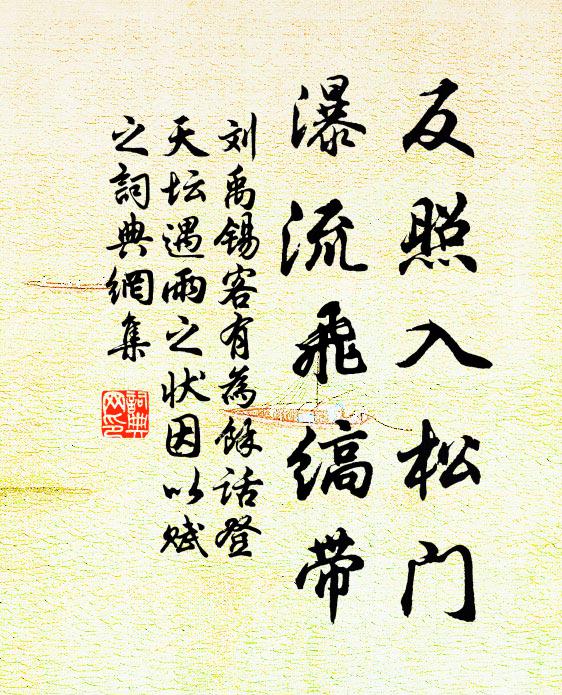 反照入松门
瀑流飞缟带
刘禹锡客有為餘话登
天坛遇雨之状因以赋
之詞典網集
詞典網印